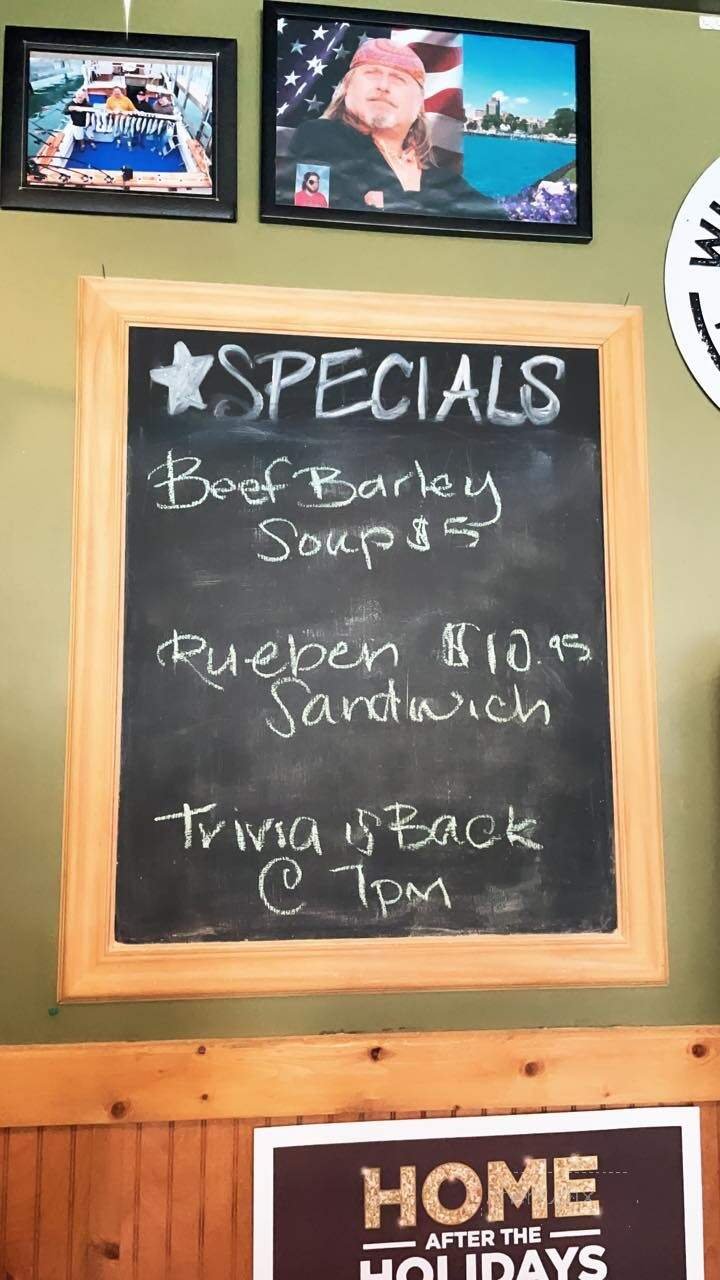 ★SPECIALS
Beef Barley
Soup $5
Rueben $10.95
Sandwich
Trivia is Back
@ 7pm
HOME
AFTER THE
HOLIDAYS